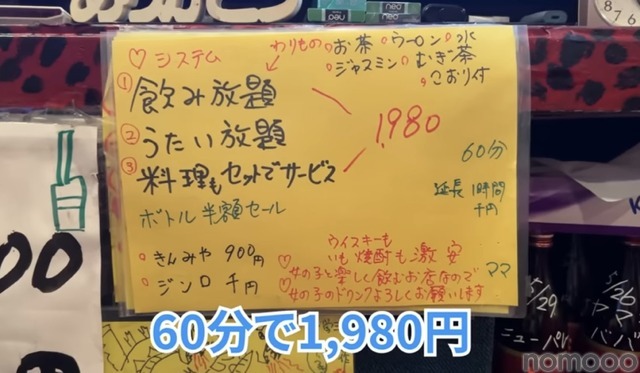 ♡システム
わりもの
。お茶 。ウーロン 。水
。ジャスミン 。むぎ茶
。こおり付
① 飲み放題
② うたい放題
③ 料理もセットでサービス
1,980
60分
延長 1時間
千円
ボトル 半額セール
・きんみや 900円
・ジンロ 千円
ウイスキーも
いも焼酎も激安
♡女の子と楽しく飲むお店なので
♡女の子のドリンクよろしくお願いします
ママ
5/29
ニュー
5/29
ババ
neo
neo
8 7 6
60分で1,980円
nomooo